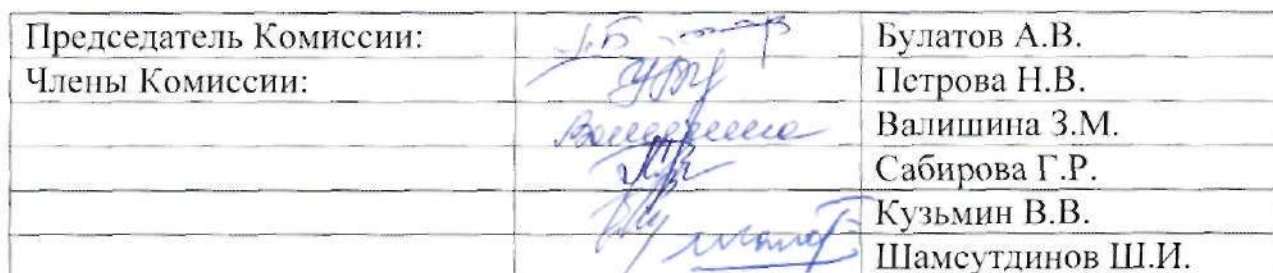 Председатель Комиссии: Булатов А.В.
Члены Комиссии: Петрова Н.В.
Валишина З.М.
Сабирова Г.Р.
Кузьмин В.В.
Шамсутдинов Ш.И.